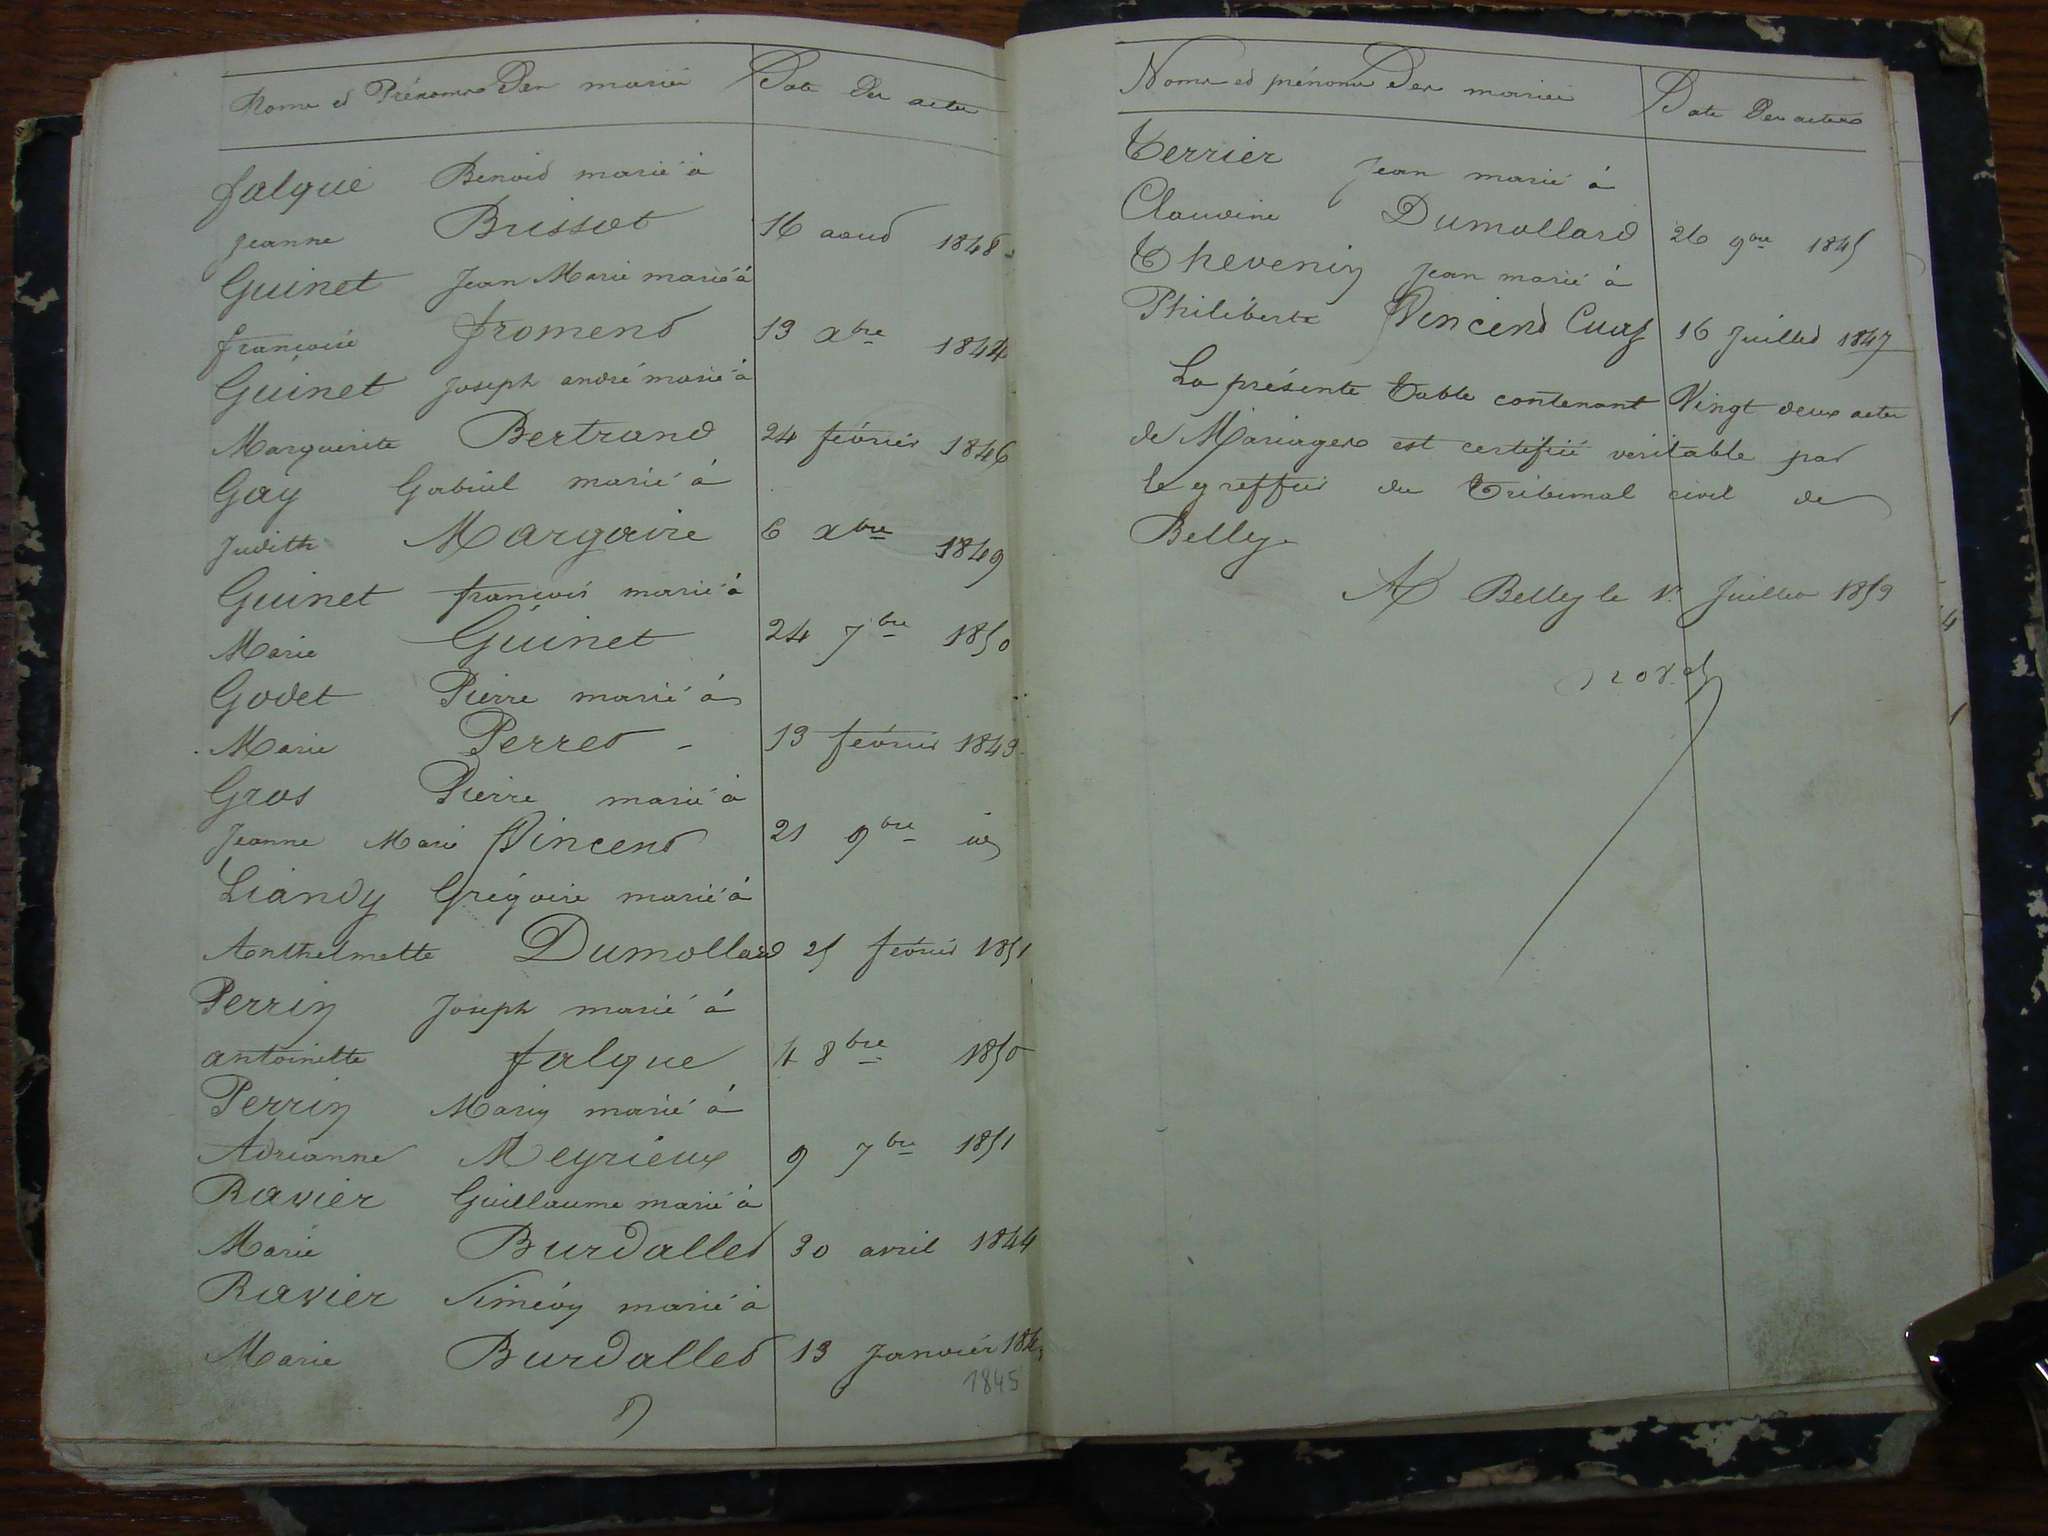 Noms et Prénoms Des mariés Date Des actes
falque Benoid marié à
Jeanne Brissot 16 aoud 1848
Guinet Jean Marie marié à
francoise froment 13 Xbre 1844
Guinet Joseph andré marié à
Marguerite Bertrand 24 février 1846
Gay Gabriel marié à
Judith Margaire 6 Xbre 1849
Guinet francois marié à
Marie Guinet 24 7bre 1850
Godet Pierre marié à
Marie Perret 13 février 1849
Gros Pierre marié à
Jeanne Marie Vincent 21 9bre id
Liandy Grégoire marié à
Anthelmette Dumollard 25 février 1851
Perrin Joseph marié à
antoinette falque 4 8bre 1850
Perrin Marin marié à
Adrianne Meyrieux 9 7bre 1851
Ravier Guillaume marié à
Marie Burdallet 30 avril 1844
Ravier Siméon marié à
Marie Burdallet 13 Janvier
1845
Noms et prénoms Des mariés Date Des actes
Terrier Jean marié à
Claudine Dumollard 26 9bre 1845
Thevenin Jean marié à
Philiberte Vincent Cuaz 16 Juillet 1847
La présente table contenant Vingt deux actes
de Mariages est certifiée véritable par
le greffier du tribunal civil de
Belley.
A Belley le 1r Juillet 1859